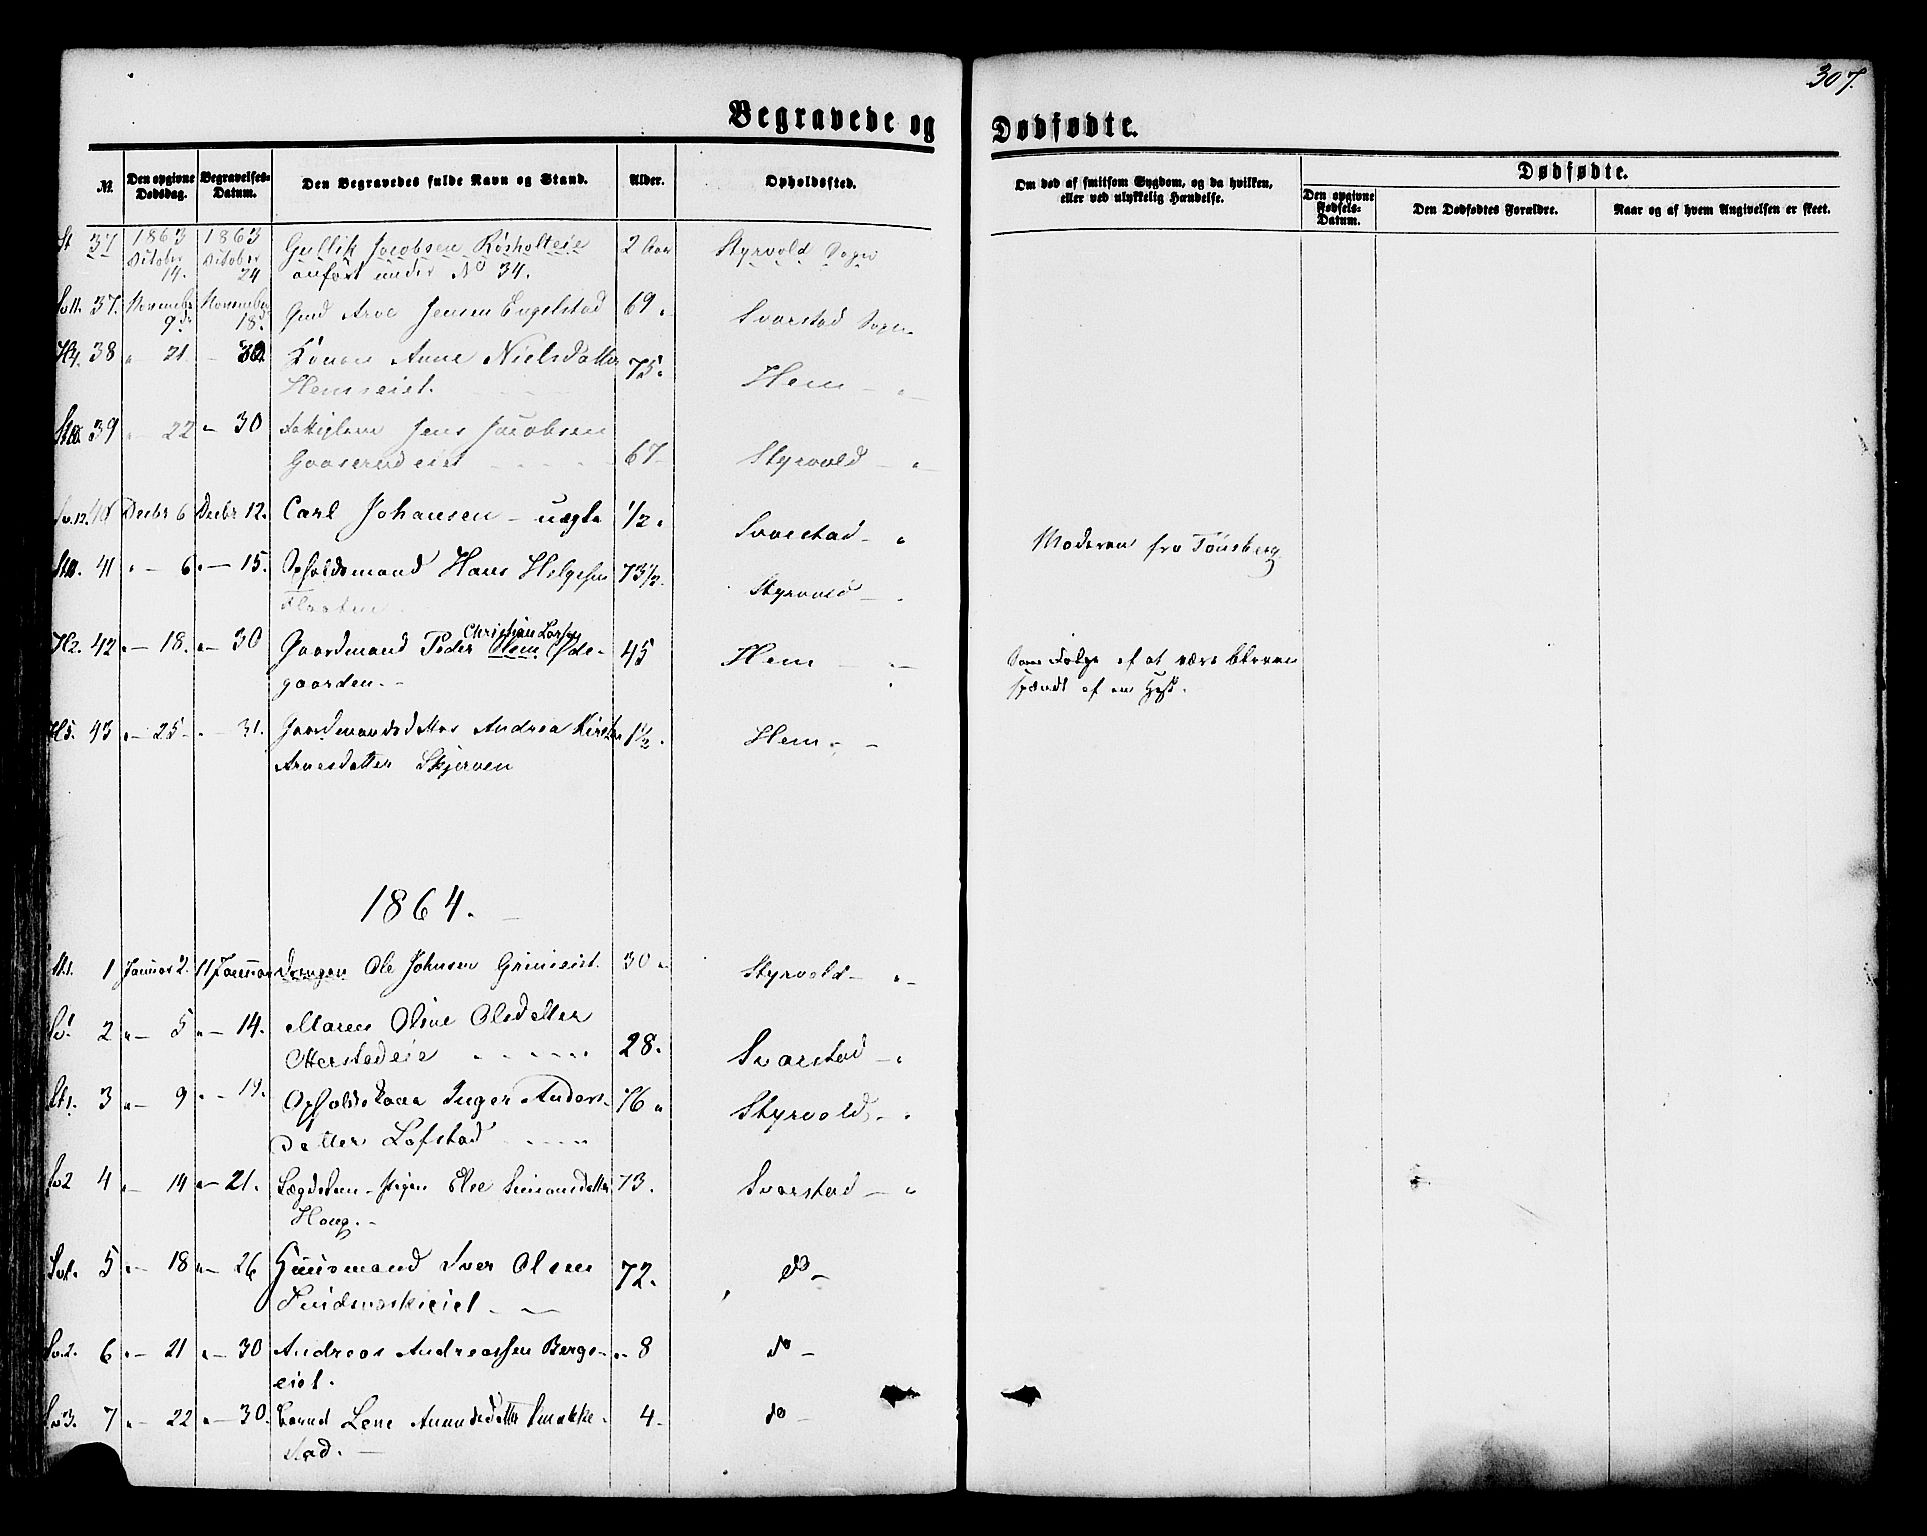 307.
Begravede og Dødfødte.
№ Den opgivne Dødsdag. Begravelses-Datum. Den Begravedes fulde Navn og Stand. Alder. Opholdssted. Om død af smitsom Sygdom, og da hvilken, eller ved ulykkelig Hændelse. Dødfødte.
Den opgivne Fødsels-Datum. Den Dødfødtes Forældre. Naar og af hvem Angivelsen er skeet.
St 37 1863 October 14. 1863 October 24 Gullik Jacobsen Rösholteie 2 Aar Styrvold Sogn
anført under No 34.
Sv11. 37. Novembr 9de November 18d. Gmd Arve Jensen Engelstad 69 " Svarstad Sogn
H7. 38 " 21 — 30. Konen Anne Nielsdatter 75. Hem — "
Hemseiet.
39 " 22 " 30 Jens Jacobsen 67 Styrvold — "
Gaaserudeiet
Sv.12. 40 Decbr 6 Decbr 12. Carl Johansen — uægte 1/2 " Svarstad — " Moderen fra Tönsberg
41 " — 6 " — 15. Opholdsmand Hans Helgesen 73 1/2. Styrvold — "
Flaaten
H2. 42 " — 18. " — 30 Gaardmand Peder Christian Larsen Hem Øde- 45 Hem — " — Som Følge af at være bleven
gaarden. — spændt af en Hest.
H5. 43 " — 25 — " — 31. Gaardmandsdatter Andrea Kirstine 1 1/2. Hem — " —
Arvesdatter Skjerven
1864.
St1. 1 Januar 2. 11 Januar Drengen Ole Johnsen Grimseiet. 30 " Styrvold — " —
Sv1. 2 " — 5 " — 14. Maren Oline Olsdatter 28. Svarstad — "
Herstadeie
St2. 3 " — 9 " — 19. Opholdskone Inger Anders- 76 " Styrvold — "
datter Lofstad
Sv2 4 " — 14 " — 21. Lægdslem Pigen Else Simonsdatter 73. Svarstad — "
Houg. —
5 " — 18 " — 26 Huusmand Iver Olsen 72. do —
6 " — 21 " — 30 Andreas Andreassen Bergs- " 8 do —
eiet.
Sv3. 7 " — 22 " — 30. Barnet Lene Amundsdatter Smukke- 4 — do —
stad. —